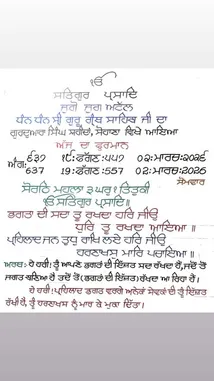 ੴ
ਸਤਿਗੁਰ ਪ੍ਰਸਾਦਿ
ਜੁਗੋ ਜੁਗ ਅਟੱਲ
ਧੰਨ ਧੰਨ ਸ੍ਰੀ ਗੁਰੂ ਗ੍ਰੰਥ ਸਾਹਿਬ ਜੀ ਦਾ
ਗੁਰਦੁਆਰਾ ਸਿੰਘ ਸ਼ਹੀਦਾਂ, ਸੋਹਾਣਾ ਵਿਖੇ ਆਇਆ
ਅੱਜ ਦਾ ਫੁਰਮਾਨ
ਅੰਗ: ੬੩੭ ੧੯:ਫੱਗਣ:੫੫੭ ੦੨:ਮਾਰਚ:੨੦੨੬
637 19:ਫੱਗਣ:557 02:ਮਾਰਚ:2026
ਸੋਮਵਾਰ
ਸੋਰਠਿ ਮਹਲਾ ੩ ਘਰੁ ੧ ਤਿਤੁਕੀ
ੴ ਸਤਿਗੁਰ ਪ੍ਰਸਾਦਿ॥
ਭਗਤਾ ਦੀ ਸਦਾ ਤੂ ਰਖਦਾ ਹਰਿ ਜੀਉ
ਧੁਰਿ ਤੂ ਰਖਦਾ ਆਇਆ॥
ਪ੍ਰਹਿਲਾਦ ਜਨ ਤੁਧੁ ਰਾਖਿ ਲਏ ਹਰਿ ਜੀਉ
ਹਰਣਾਖਸੁ ਮਾਰਿ ਪਚਾਇਆ॥
ਅਰਥ: ਹੇ ਹਰੀ! ਤੂੰ ਆਪਣੇ ਭਗਤਾਂ ਦੀ ਇੱਜ਼ਤ ਸਦਾ ਰੱਖਦਾ ਹੈਂ, ਜਦੋਂ ਤੋਂ
ਜਗਤ ਬਣਿਆ ਹੈ ਤਦੋਂ ਤੋਂ (ਭਗਤਾਂ ਦੀ ਇੱਜ਼ਤ) ਰੱਖਦਾ ਆ ਰਿਹਾ ਹੈਂ।
ਹੇ ਹਰੀ! ਪ੍ਰਹਿਲਾਦ ਭਗਤ ਵਰਗੇ ਅਨੇਕਾਂ ਸੇਵਕਾਂ ਦੀ ਤੂੰ ਇੱਜ਼ਤ
ਰੱਖੀ ਹੈ, ਤੂੰ ਹਰਣਾਖਸ਼ ਨੂੰ ਮਾਰ ਕੇ ਮੁਕਾ ਦਿੱਤਾ।